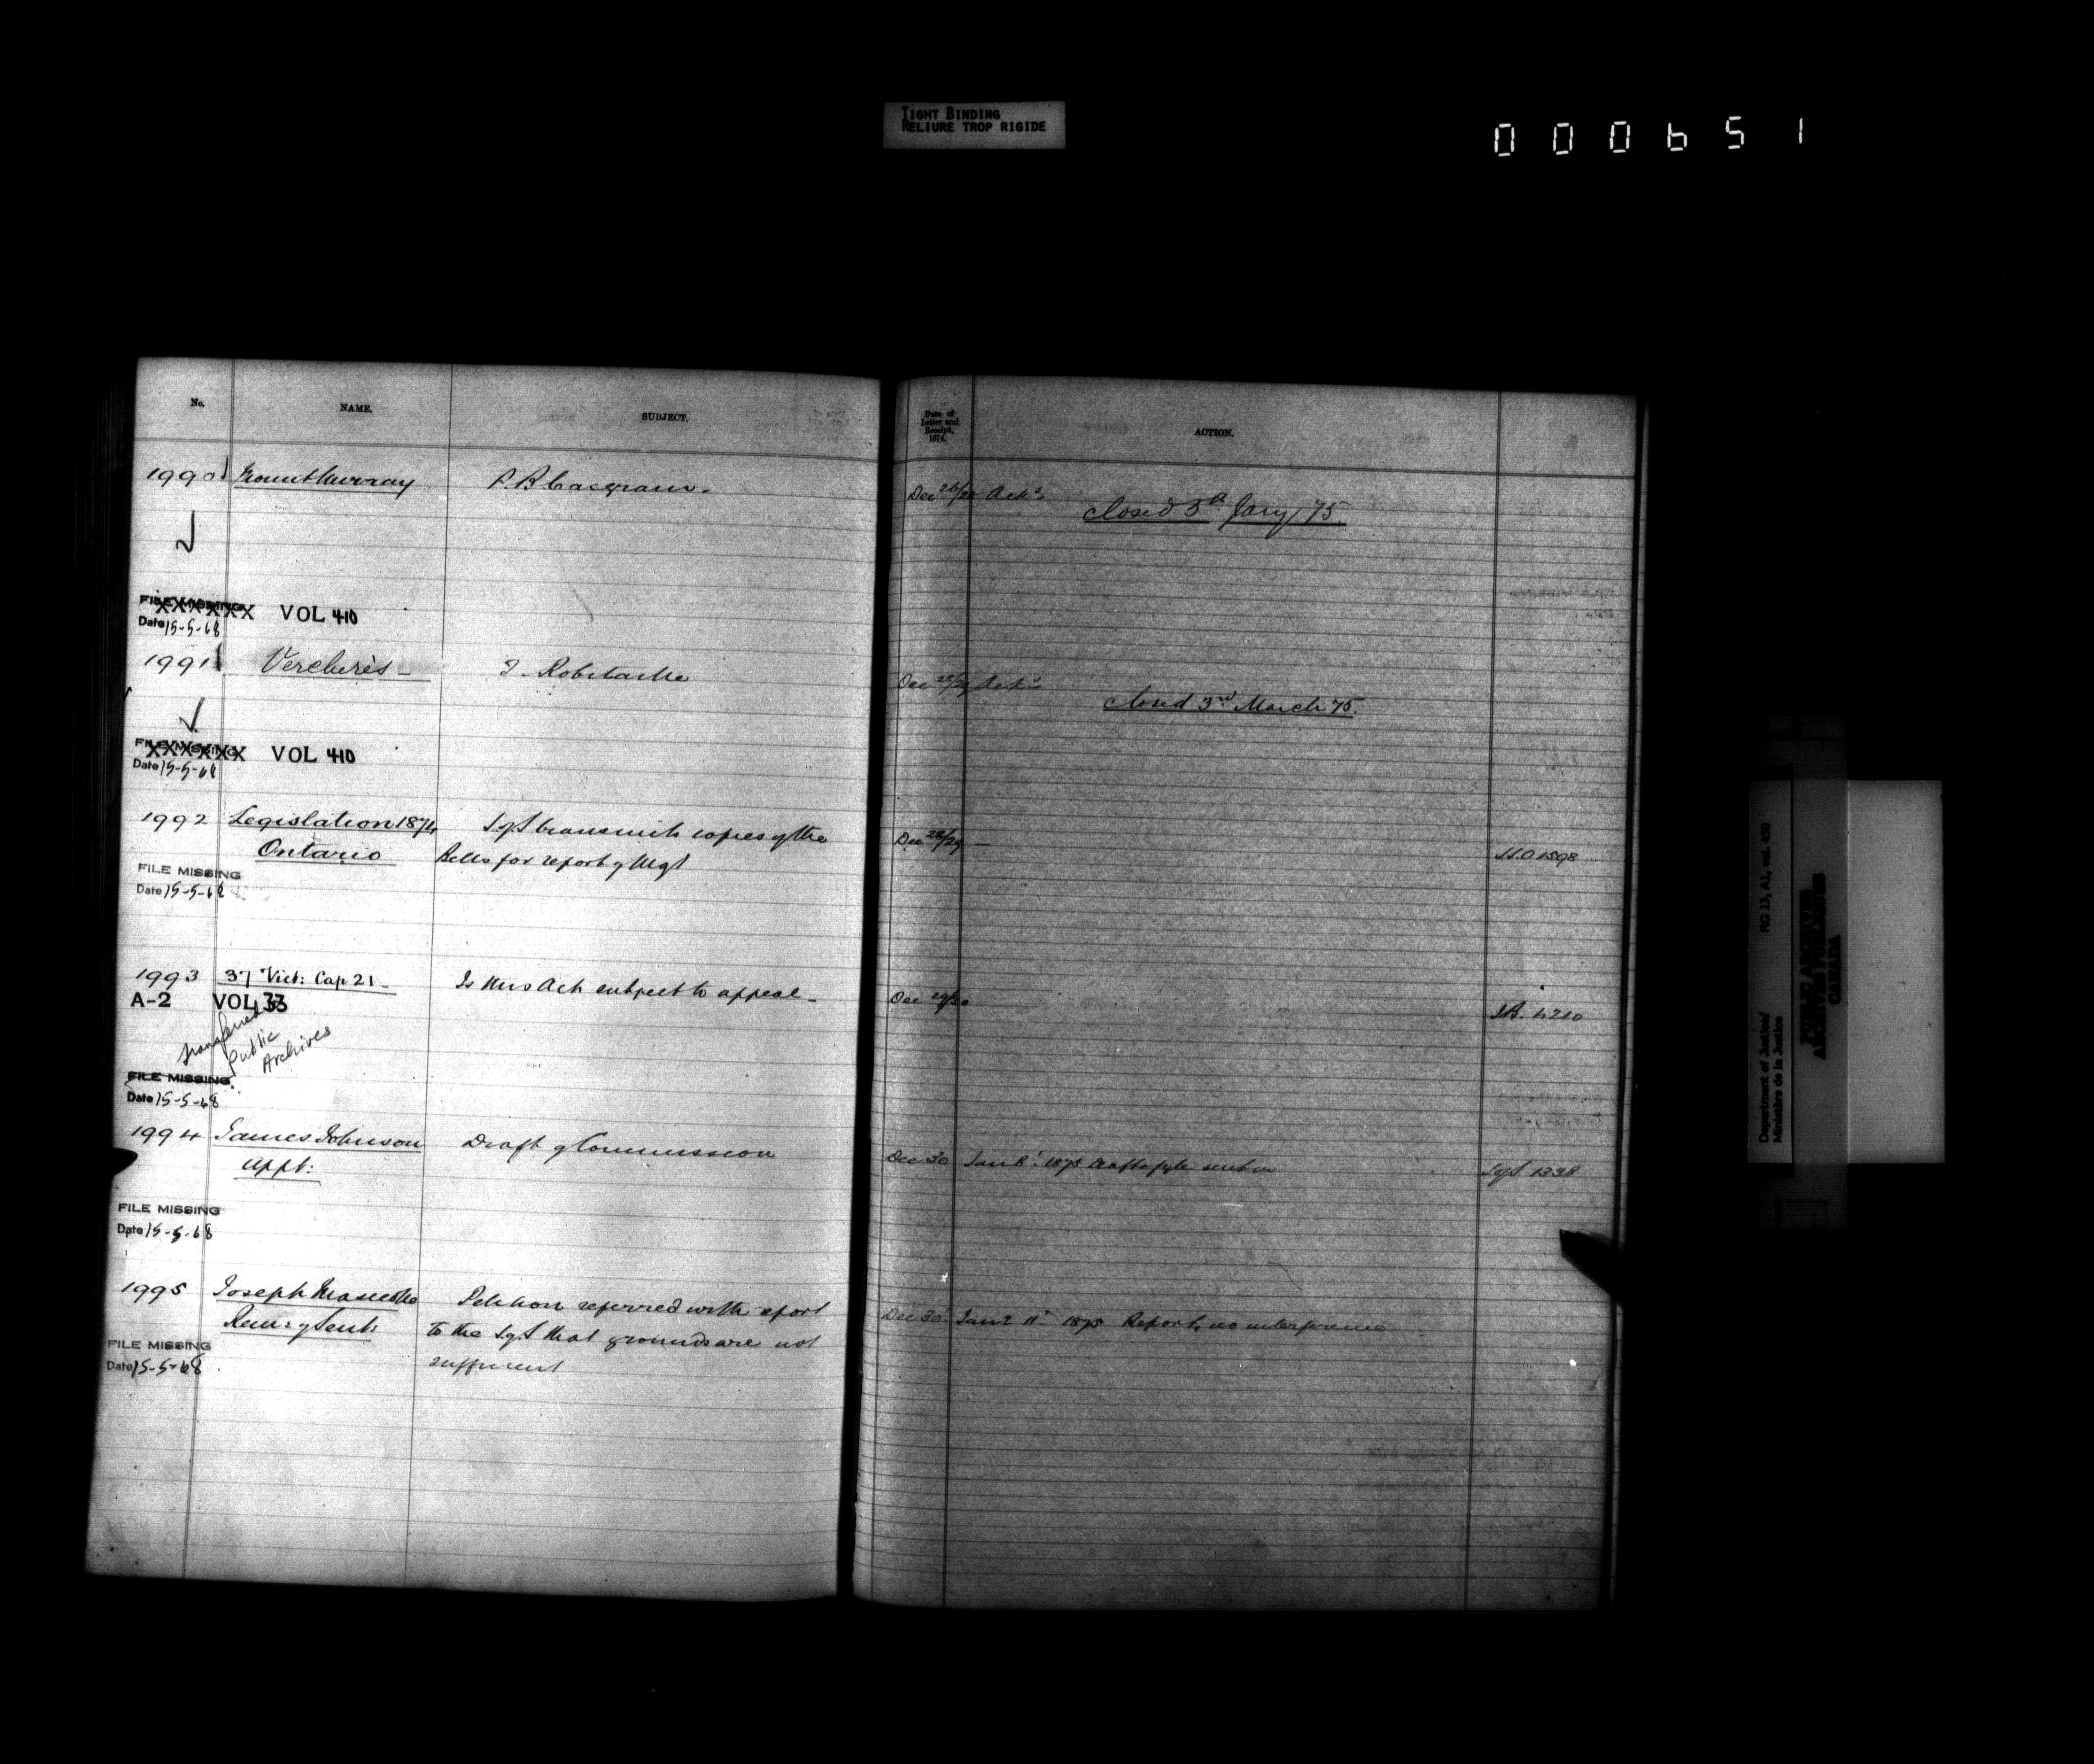 TIGHT BINDING
RELIURE TROP RIGIDE
000651
No.
NAME.
SUBJECT.
Date of
Letter and
Receipt,
1874.
ACTION.
1990
Mount Murray
P. B. Casgrain.
Dec 26/28 Ackd
Closed 5th Jany/75.
FILE MISSING
XXXXXX VOL 410
Date 15-5-68
1991
Verchères
Robitaille
Dec 28/29 Ackd
Closed 3rd March 75.
FILE MISSING
XXXXXX VOL 410
Date 15-5-68
1992
Legislation 1874
Ontario
S of S transmits copies of the
Bills for report of Mgt
Dec 28/29 —
FILE MISSING
Date 15-5-68
1993
37 Vict: Cap 21
Is this Act subject to appeal
Dec 29/30
A-2 VOL 33
transferred
Public
Archives
FILE MISSING
Date 15-5-68
1994
James Johnson
Appt:
Draft of Commission
Dec 30
1875 Draft
sent
S of S 1338
FILE MISSING
Date 15-5-68
1995
Joseph
Rem: of Sent:
Petition referred with report
to the S of S that grounds are not
sufficient
Dec 30
11th 1875 Report, no interference
FILE MISSING
Date 15-5-68
Department of Justice/ RG 13, A1, vol. 450
Ministère de la Justice
PUBLIC ARCHIVES
ARCHIVES PUBLIQUES
CANADA